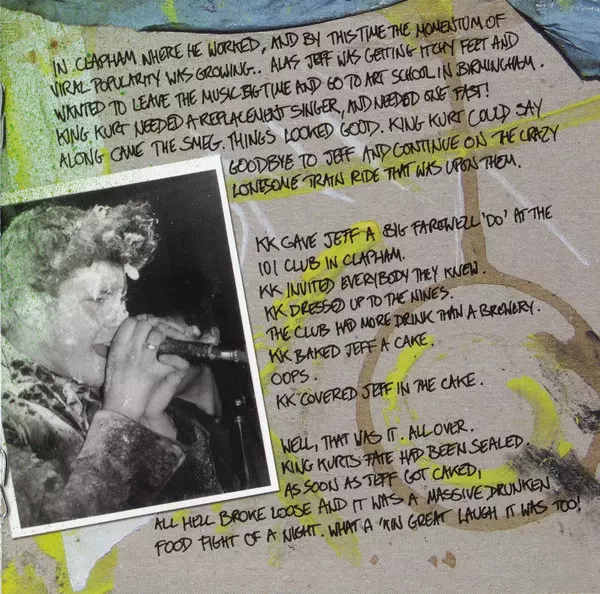 IN CLAPHAM WHERE HE WORKED, AND BY THIS TIME THE MOMENTUM OF
VIRAL POPULARITY WAS GROWING.. ALAS JEFF WAS GETTING ITCHY FEET AND
WANTED TO LEAVE THE MUSIC BIGTIME AND GO TO ART SCHOOL IN BIRMINGHAM.
KING KURT NEEDED A REPLACEMENT SINGER, AND NEEDED ONE FAST!
ALONG CAME THE SMEG. THINGS LOOKED GOOD. KING KURT COULD SAY
GOODBYE TO JEFF AND CONTINUE ON THE CRAZY
LONESOME TRAIN RIDE THAT WAS UPON THEM.
KK GAVE JEFF A BIG FAREWELL 'DO' AT THE
101 CLUB IN CLAPHAM.
KK INVITED EVERYBODY THEY KNEW.
KK DRESSED UP TO THE NINES.
THE CLUB HAD MORE DRINK THAN A BREWERY.
KK BAKED JEFF A CAKE.
OOPS.
KK COVERED JEFF IN THE CAKE.
WELL, THAT WAS IT. ALL OVER.
KING KURTS FATE HAD BEEN SEALED.
AS SOON AS JEFF GOT CAKED,
ALL HELL BROKE LOOSE AND IT WAS A MASSIVE DRUNKEN
FOOD FIGHT OF A NIGHT. WHAT A 'KIN GREAT LAUGH IT WAS TOO!